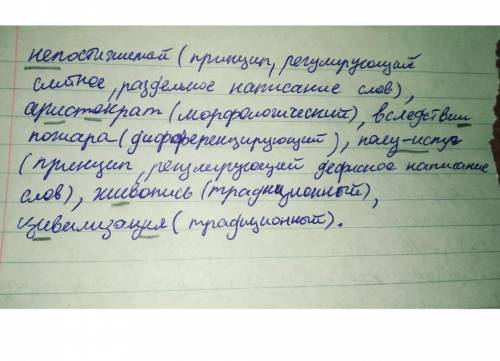 непостижимый (принцип, регулирующий
слитное, раздельное написание слов),
аристократ (морфологический), вследствии
пожара (дифференцирующий), полу-испуг
(принцип, регулирующий дефисное написание
слов), живопись (традиционный),
цивилизация (традиционный).